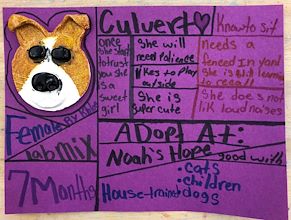 Culvert
Know to sit
once she start
to trust
you she
is a
sweet
girl
She will
need Patience
likes to play
outside
She is
super cute
Needs a
fenced in yard
She is still learning
to recall
She does not
lik loud noises
Female
lab mix
7 Months
ADopt At:
Noah's Hope
good with
:cats
:children
:dogs
House-trained